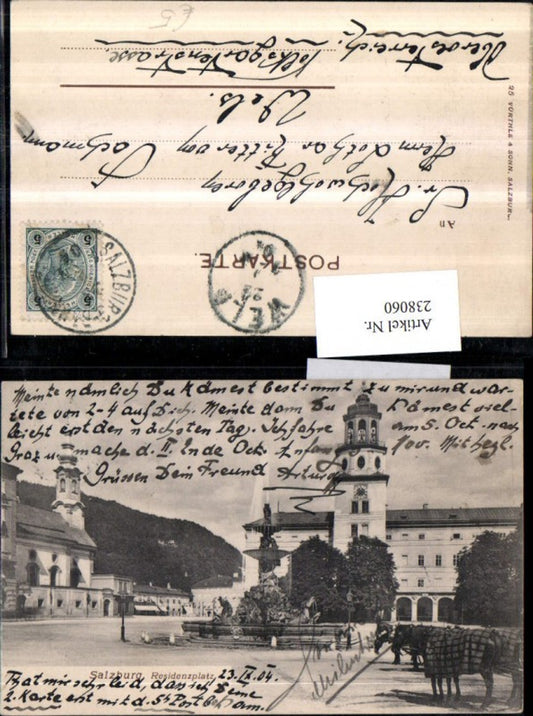 £5
POSTKARTE
An
Sr. Hochwohlgeboren
Herrn Lothar Ritter von
Wels.
Volksgartenstrasse.
Oberösterreich.
25 VORTHLE & SOHN, SALZBURG
SALZBURG
WELS
5 5
Artikel Nr.
238060
Meinte nämlich Du kämest bestimmt zu mir und war-
tete von 2-4 auf Dich. Meinte dann Du kämest viel-
leicht erst den nächsten Tag. Ich fahre am 5. Oct. nach
Graz u. mache d. II. Ende Oct. Anfang Nov. Mit herzl.
Grüssen Dein Freund Arthur
Salzburg Residenzplatz 23. IX. 04.
That mir sehr leid, dass ich Deine
2. Karte erst mit d. 5h Post bekam.